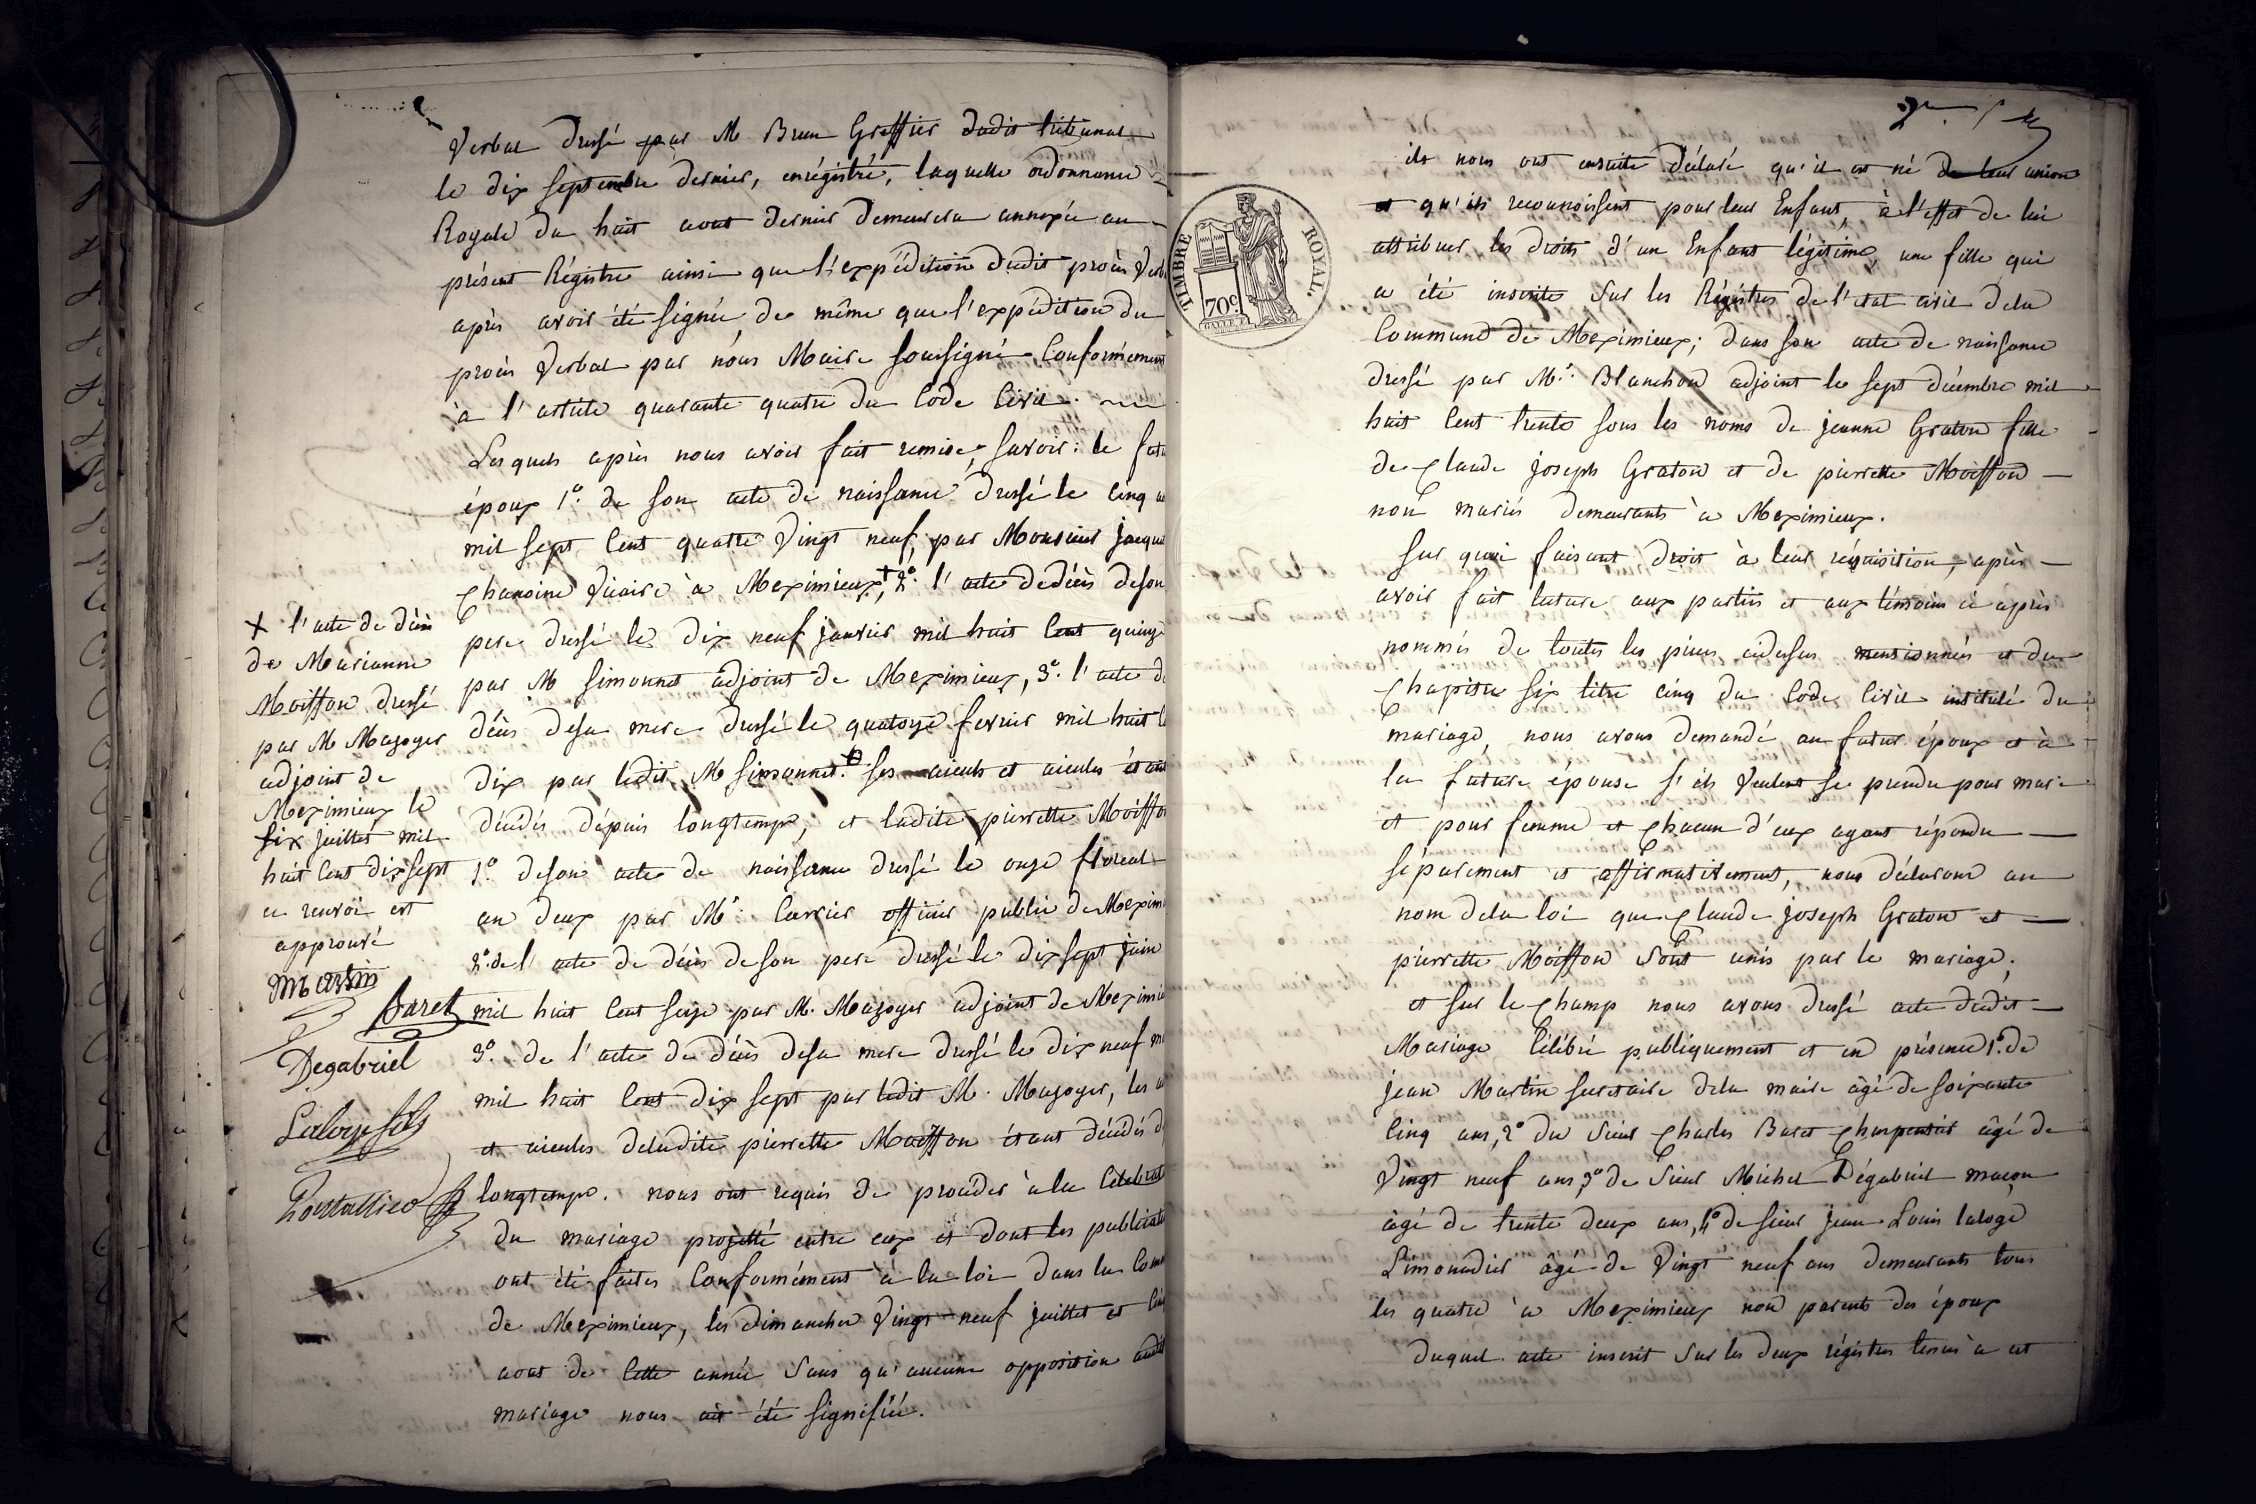 Verbal dressé par M Brun Greffier dudit tribunal
le dix septembre dernier, enrégistré, laquelle ordonnance
Royale du huit aout dernier demeurera annexée au
présent Régistre ainsi que l'expédition dudit procès Verb
après avoir été signée, de même que l'expédition du
procès Verbal par nous Maire soussigné Conformement
à l'article quarante quatre du Code Civil.
Lesquels après nous avoir fait remise, savoir: le futu
époux 1º. de son acte de naissance dressé le cinq
mil sept Cent quatre Vingt neuf, par Monsieur Jacque
Chanoine Vicaire à Meximieux,+ 2º. l'acte de décès de son
pere dressé le dix neuf janvier mil huit Cent quinze
par M Simonnet adjoint de Meximieux, 3º. l'acte de
décès de sa mere dressé le quatorze fevrier mil huit C
dix par ledit M Simonnet. ses aieuls et aieules étant
décédés dépuis longtemps, et ladite pierrette Moiffon
1º. de son acte de naissance dressé le onze floreal
an deux par Mr. Carrier officier public de Mexim
2º. de l'acte de décès de son pere dressé le dix sept juin
mil huit Cent seize par M. Mazoyer adjoint de Meximie
3º. de l'acte de décès de sa mere dressé le dix neuf m
mil huit Cent dix sept par ledit M. Mazoyer, les a
et aieules de ladite pierrette Moiffon étant décédés d
longtemps. nous ont requis de procéder à la Célébrat
du mariage projetté entre eux et dont les publicati
ont été faites Conformément à la loi dans la Com
de Meximieux, les dimanches Vingt neuf juillet et Cinq
aout de Cette année sans qu'aucune opposition audit
mariage nous ait été signifiée.
+ l'acte de décès
de Marianne
Moiffon dressé
par M Mazoyer
adjoint de
Meximieux le
six juillet mil
huit Cent dix sept
ce renvoi est
approuvé
Martin
Baret
Degabriel
Laloge fils
TIMBRE ROYAL.
70c.
ils nous ont ensuite déclaré qu'il est né de leur union
et qu'ils reconnoissent pour leur Enfant, à l'effet de lui
attribuer les droits d'un Enfant légitime, une fille qui
a été inscrite sur les Régistres de l'etat civil de la
Commune de Meximieux; dans son acte de naissance
dressé par Mr. Blanchon adjoint le sept décembre mil
huit Cent trente sous les noms de jeanne Graton fille
de Claude joseph Graton et de pierrette Moiffon
non mariés demeurants à Meximieux.
Sur quoi faisant droit à leur réquisition, après
avoir fait lecture aux parties et aux témoins ci après
nommés de toutes les pieces cidessus mentionnées et du
Chapitre six titre cinq du Code Civil intitulé du
mariage, nous avons demandé au futur époux et à
la future épouse s'ils veulent se prendre pour mari
et pour femme et Chacun d'eux ayant répondu
séparement et affirmativement, nous déclarons au
nom de la loi que Claude joseph Graton et
pierrette Moiffon sont unis par le mariage;
et sur le Champ nous avons dressé acte dudit
Mariage Célébré publiquement et en présence 1º. de
jean Martin secretaire de la mairie âgé de soixante
Cinq ans, 2º du sieur Charles Baret Charpentier âgé de
Vingt neuf ans, 3º de sieur Michel Dégabriel maçon
âgé de trente deux ans, 4º de sieur jean Louis laloge
Limonadier âgé de Vingt neuf ans demeurants tous
les quatre à Meximieux non parents des époux
duquel acte inscrit sur les deux régistres tenus à cet